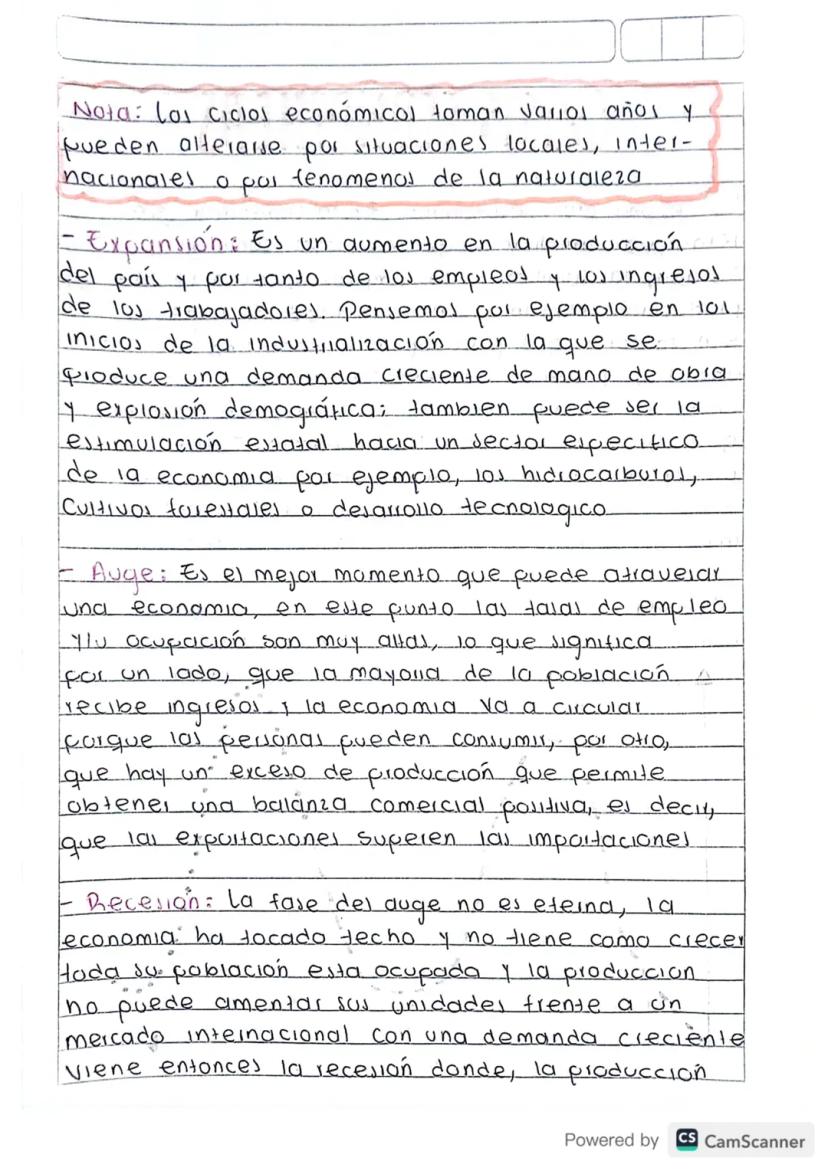 Nota: los ciclos económicos toman varios años y
pueden alterarse por situaciones locales, inter-
nacionales o por fenomenos de la naturaleza
- Expansión: Es un aumento en la producción
del país y por tanto de los empleos y los ingresos
de los trabajadores. Pensemos por ejemplo en los
inicios de la industrialización con la que se
produce una demanda creciente de mano de obra
y explosión demográfica; tambien puede ser la
estimulación estatal hacia un sector especifico
de la economia por ejemplo, los hidrocarburos,
Cultivos forestales o desarrollo tecnologico
- Auge: Es el mejor momento que puede atravesar
una economia, en este punto las tasas de empleo
y/u ocupación son muy altas, lo que significa
por un lado, que la mayoria de la población
recibe ingresos y la economia va a circular
porque las personas pueden consumir, por otro,
que hay un exceso de producción que permite
obtener una balanza comercial positiva, es decir,
que las exportaciones superen las importaciones
- Recesión: La fase del auge no es eterna, la
economia ha tocado techo y no tiene como crecer
toda su población esta ocupada y la produccion
no puede amentar sus unidades frente a un
mercado internacional con una demanda creciente
viene entonces la recesión donde, la producción
Powered by CS CamScanner